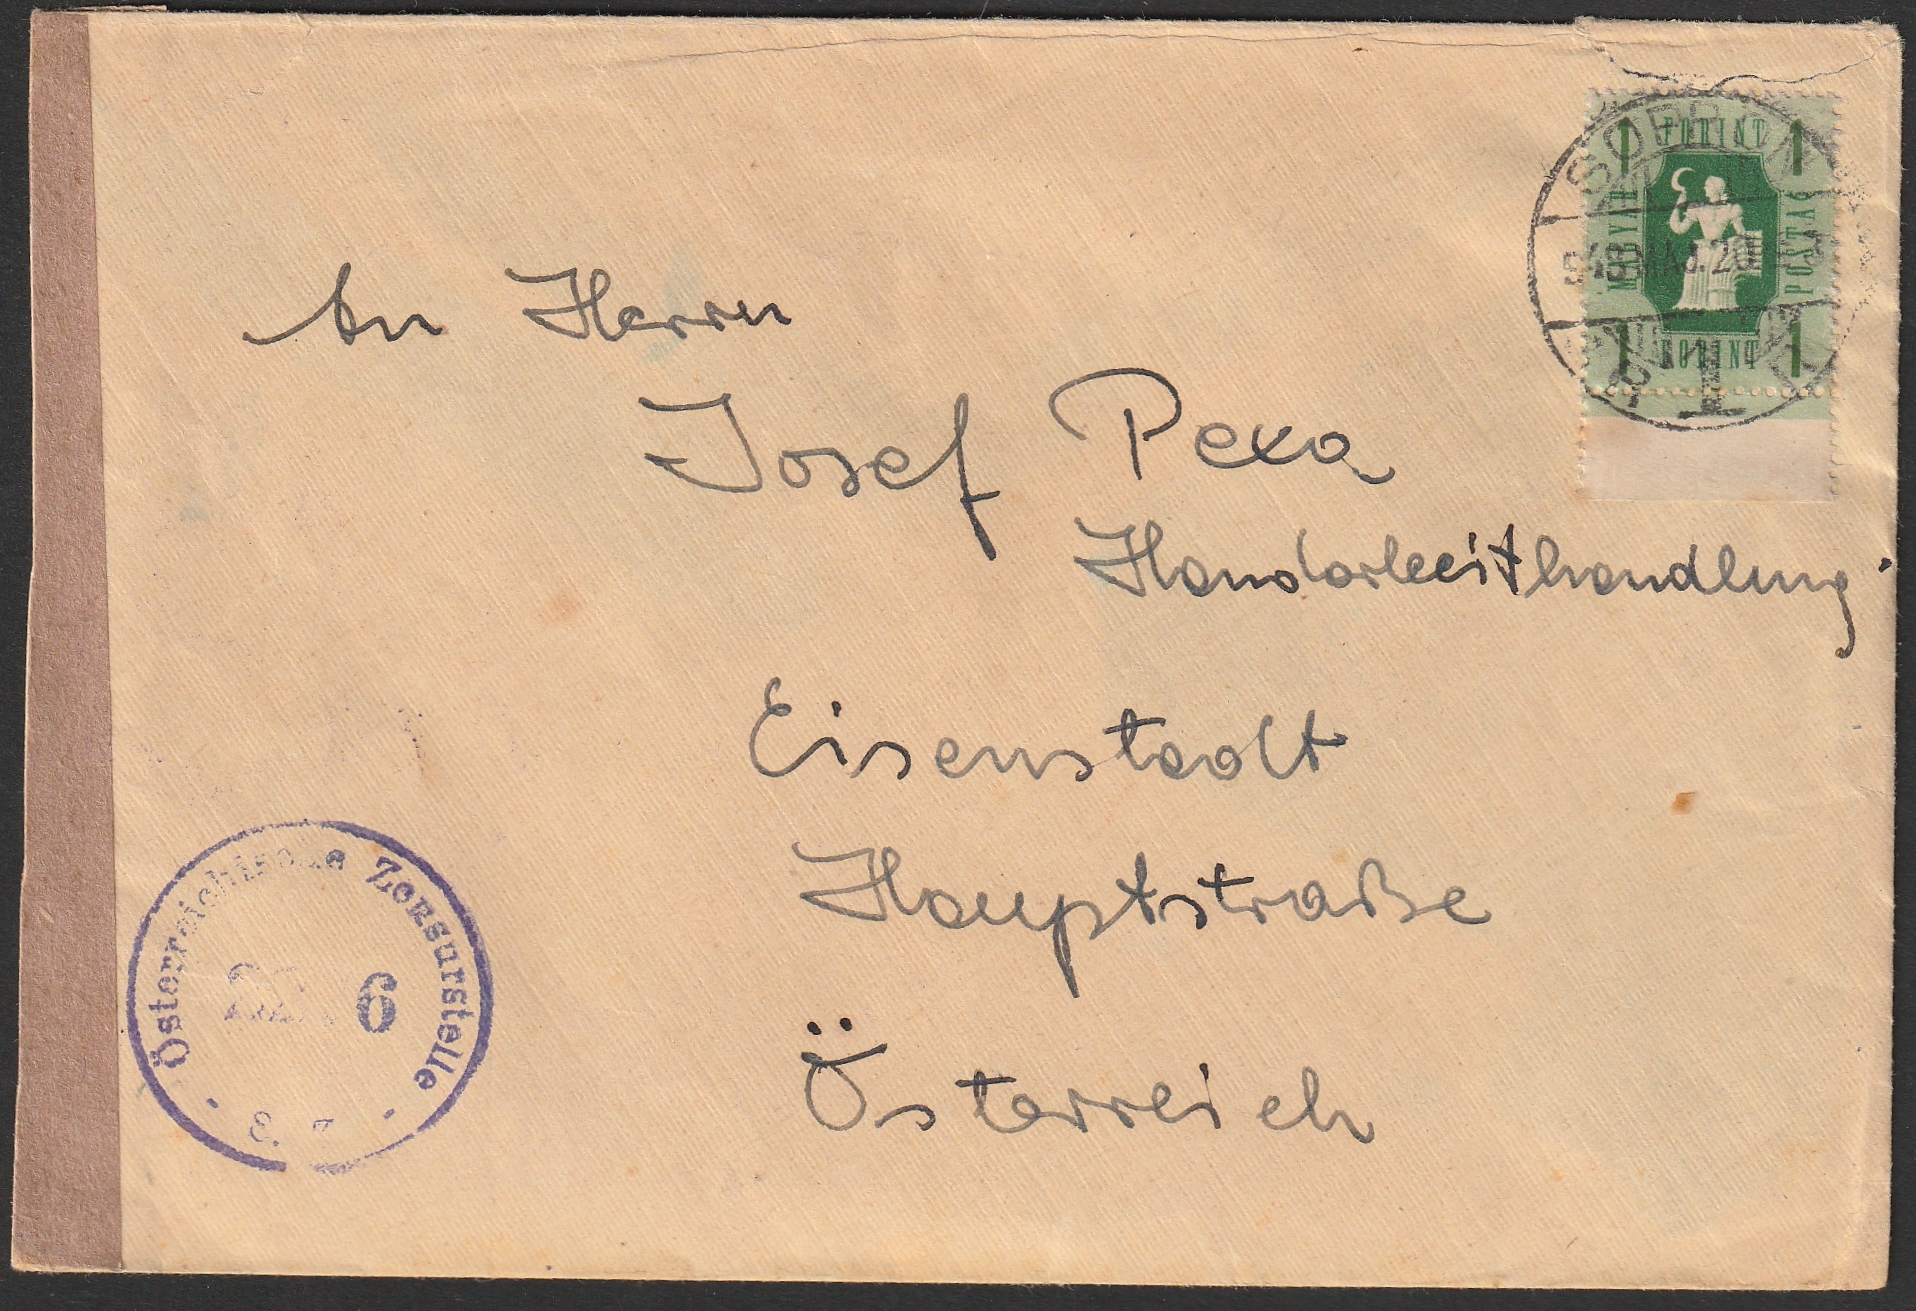 1 FORINT 1
MAGYAR
POSTA
1 FORINT 1
SOPRON
948 MÁJ. 20
An Herrn
Josef Pexa
Handarbeithandlung
Eisenstadt
Hauptstraße
Österreich
Österreichische Zensurstelle
6